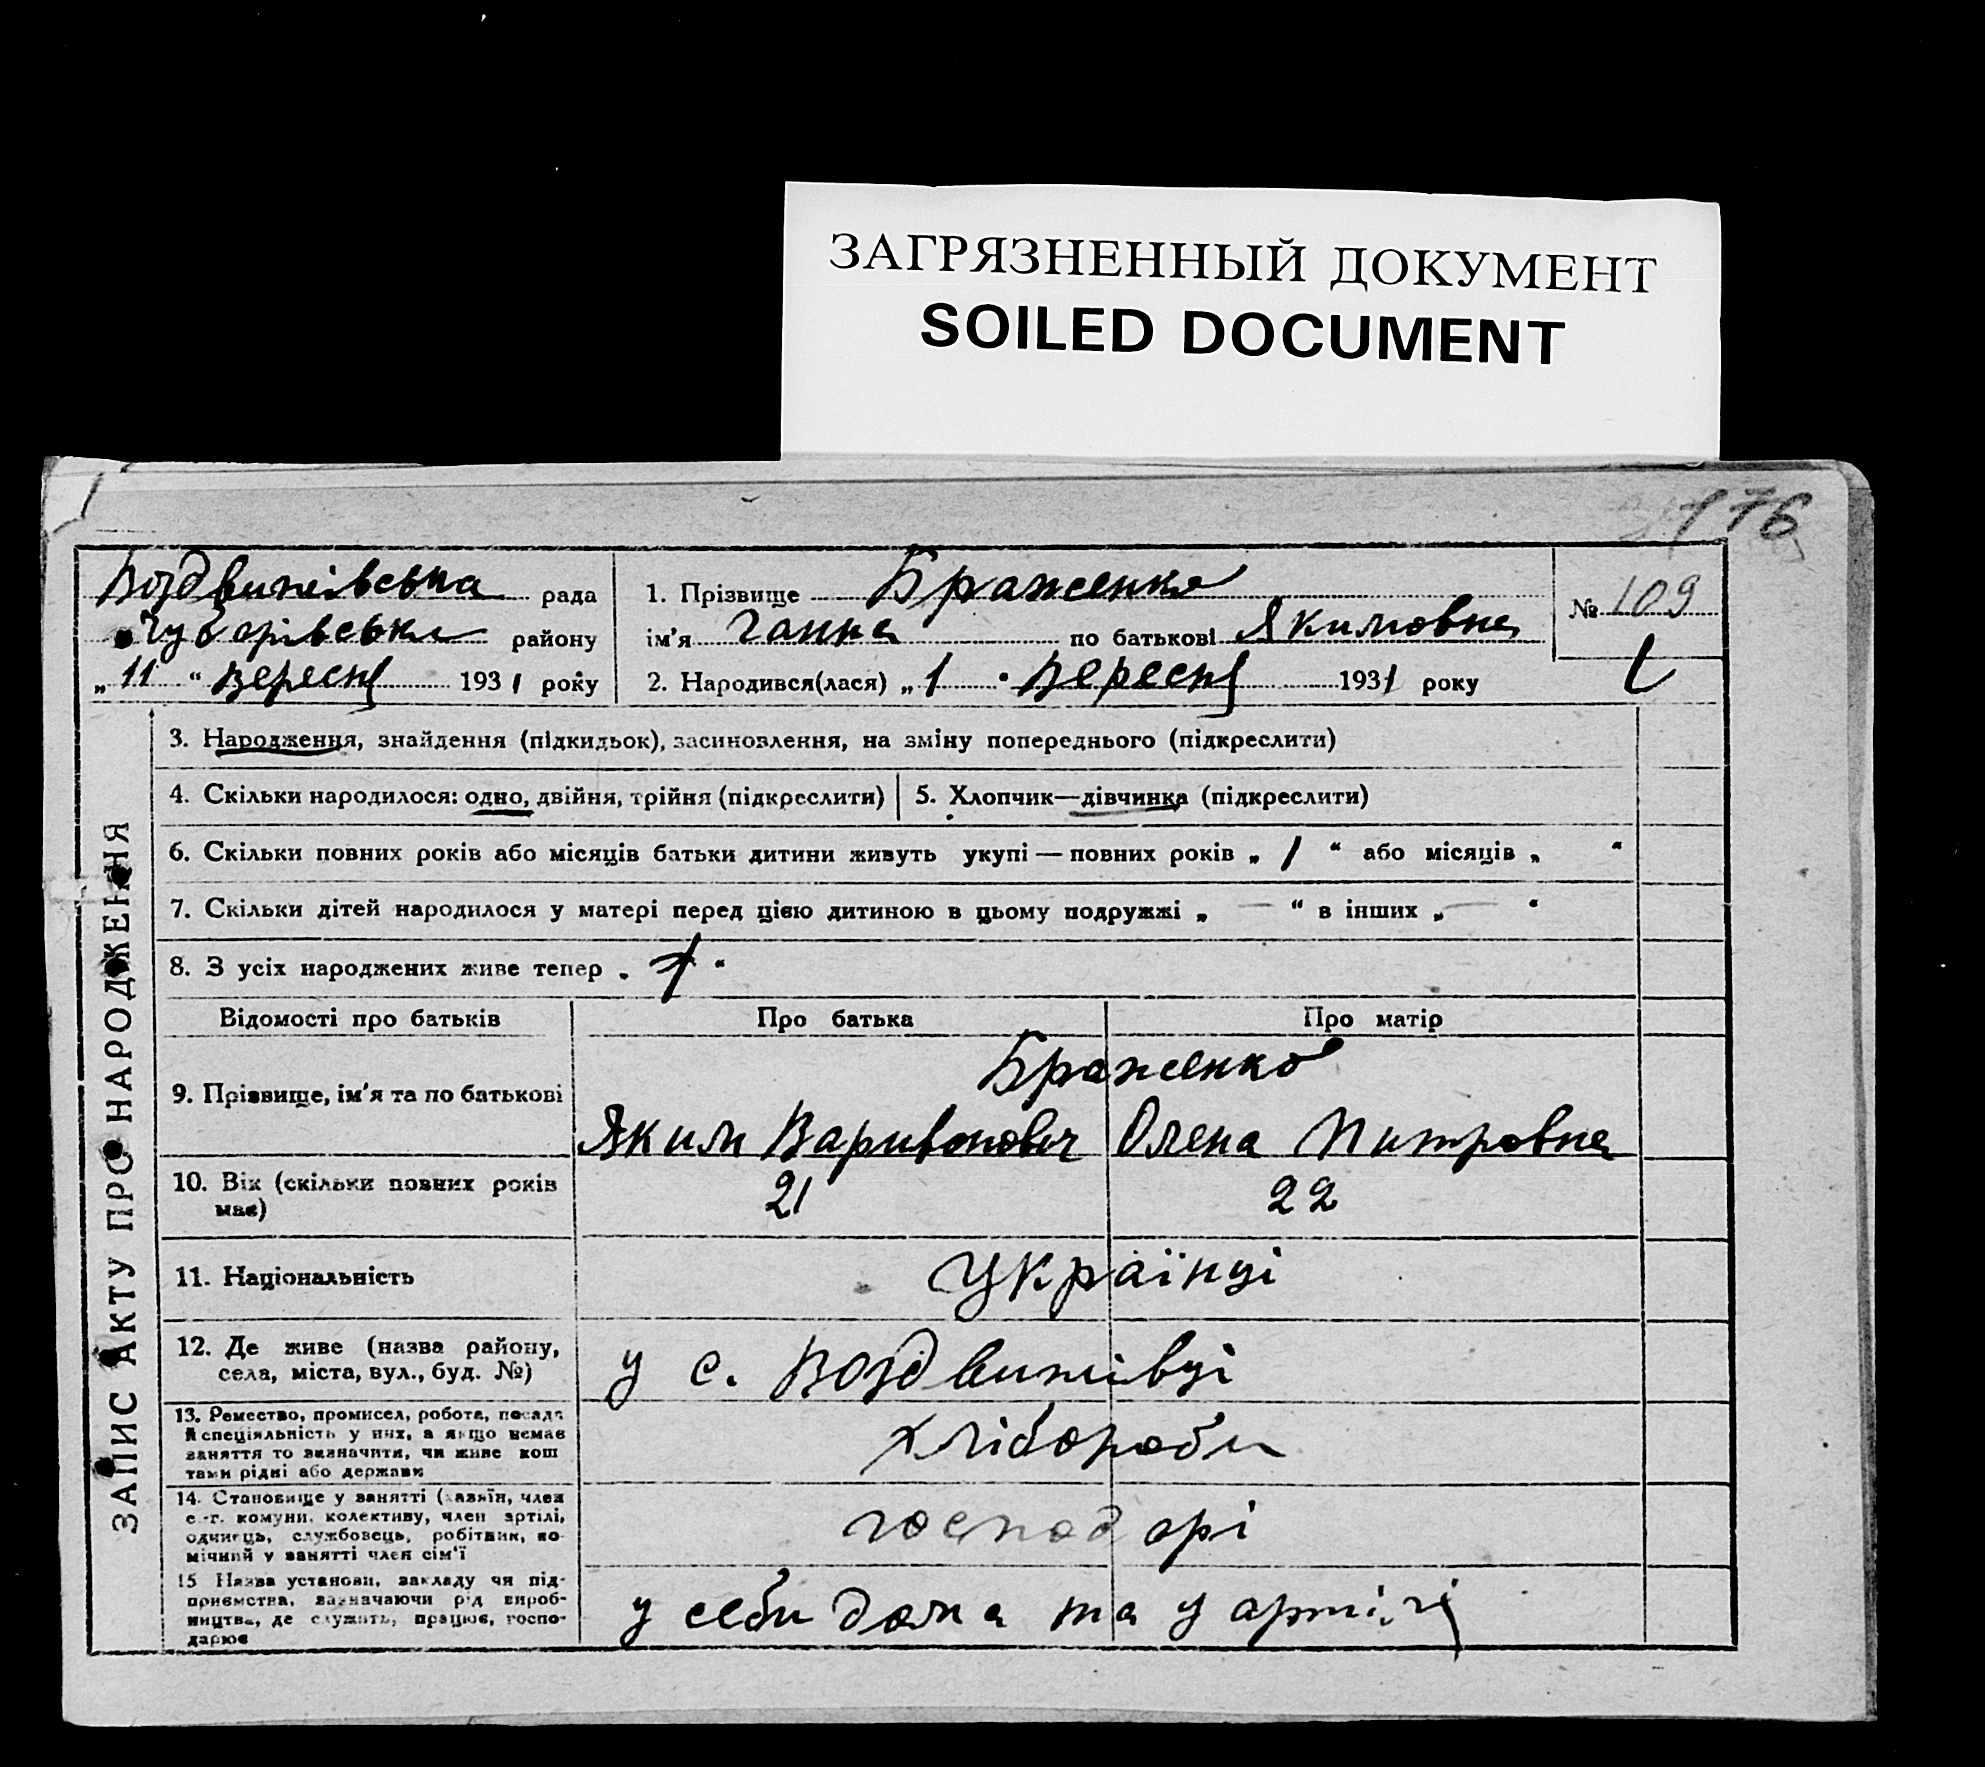 ЗАГРЯЗНЕННЫЙ ДОКУМЕНТ
SOILED DOCUMENT
176
Воздвижівська рада
Чубарівськи району
„ 11 “ Вересня 1931 року
1. Прізвище Браженко
ім'я Ганна по батькові Якимовна
2. Народився(лася) „ 1 Вересня 1931 року
№ 109
ЗАПИС АКТУ ПРО НАРОДЖЕННЯ
3. Народження, знайдення (підкидьок), засиновлення, на зміну попереднього (підкреслити)
4. Скільки народилося: одно, двійня, трійня (підкреслити)
5. Хлопчик—дівчинка (підкреслити)
6. Скільки повних років або місяців батьки дитини живуть укупі — повних років „ 1 “ або місяців „ “
7. Скільки дітей народилося у матері перед цією дитиною в цьому подружжі „ — “ в інших „ — “
8. З усіх народжених живе тепер „ “
Відомості про батьків
Про батька
Про матір
9. Прізвище, ім'я та по батькові
Браженко
Яким Варивонович
Олена Митровна
10. Вік (скільки повних років
має)
21
22
11. Національність
Українці
12. Де живе (назва району,
села, міста, вул., буд. №)
у с. Воздвижівці
13. Ремество, промисел, робота, посада
й спеціяльність у них, а якщо немає
заняття то визначити, чи живе кош
тами рідні або держави
хлібороби
14. Становище у занятті (хазяїн, член
с.-г. комуни, колективу, член артілі,
одинець, службовець, робітник, по-
мічний у занятті член сім'ї
господарі
15 Назва установи, закладу чи під-
приємства, зазначаючи рід вироб-
ництва, де служить, працює, госпо-
дарює
у себи дома та у артілі